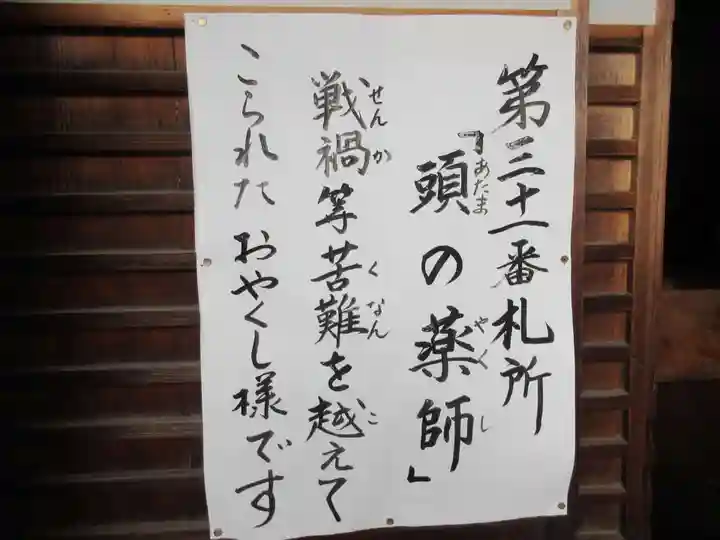 第三十一番札所
「頭の薬師」
戦禍等苦難を越えて
こられたおやくし様です
あたま
やくし
せんか
くなん
こ